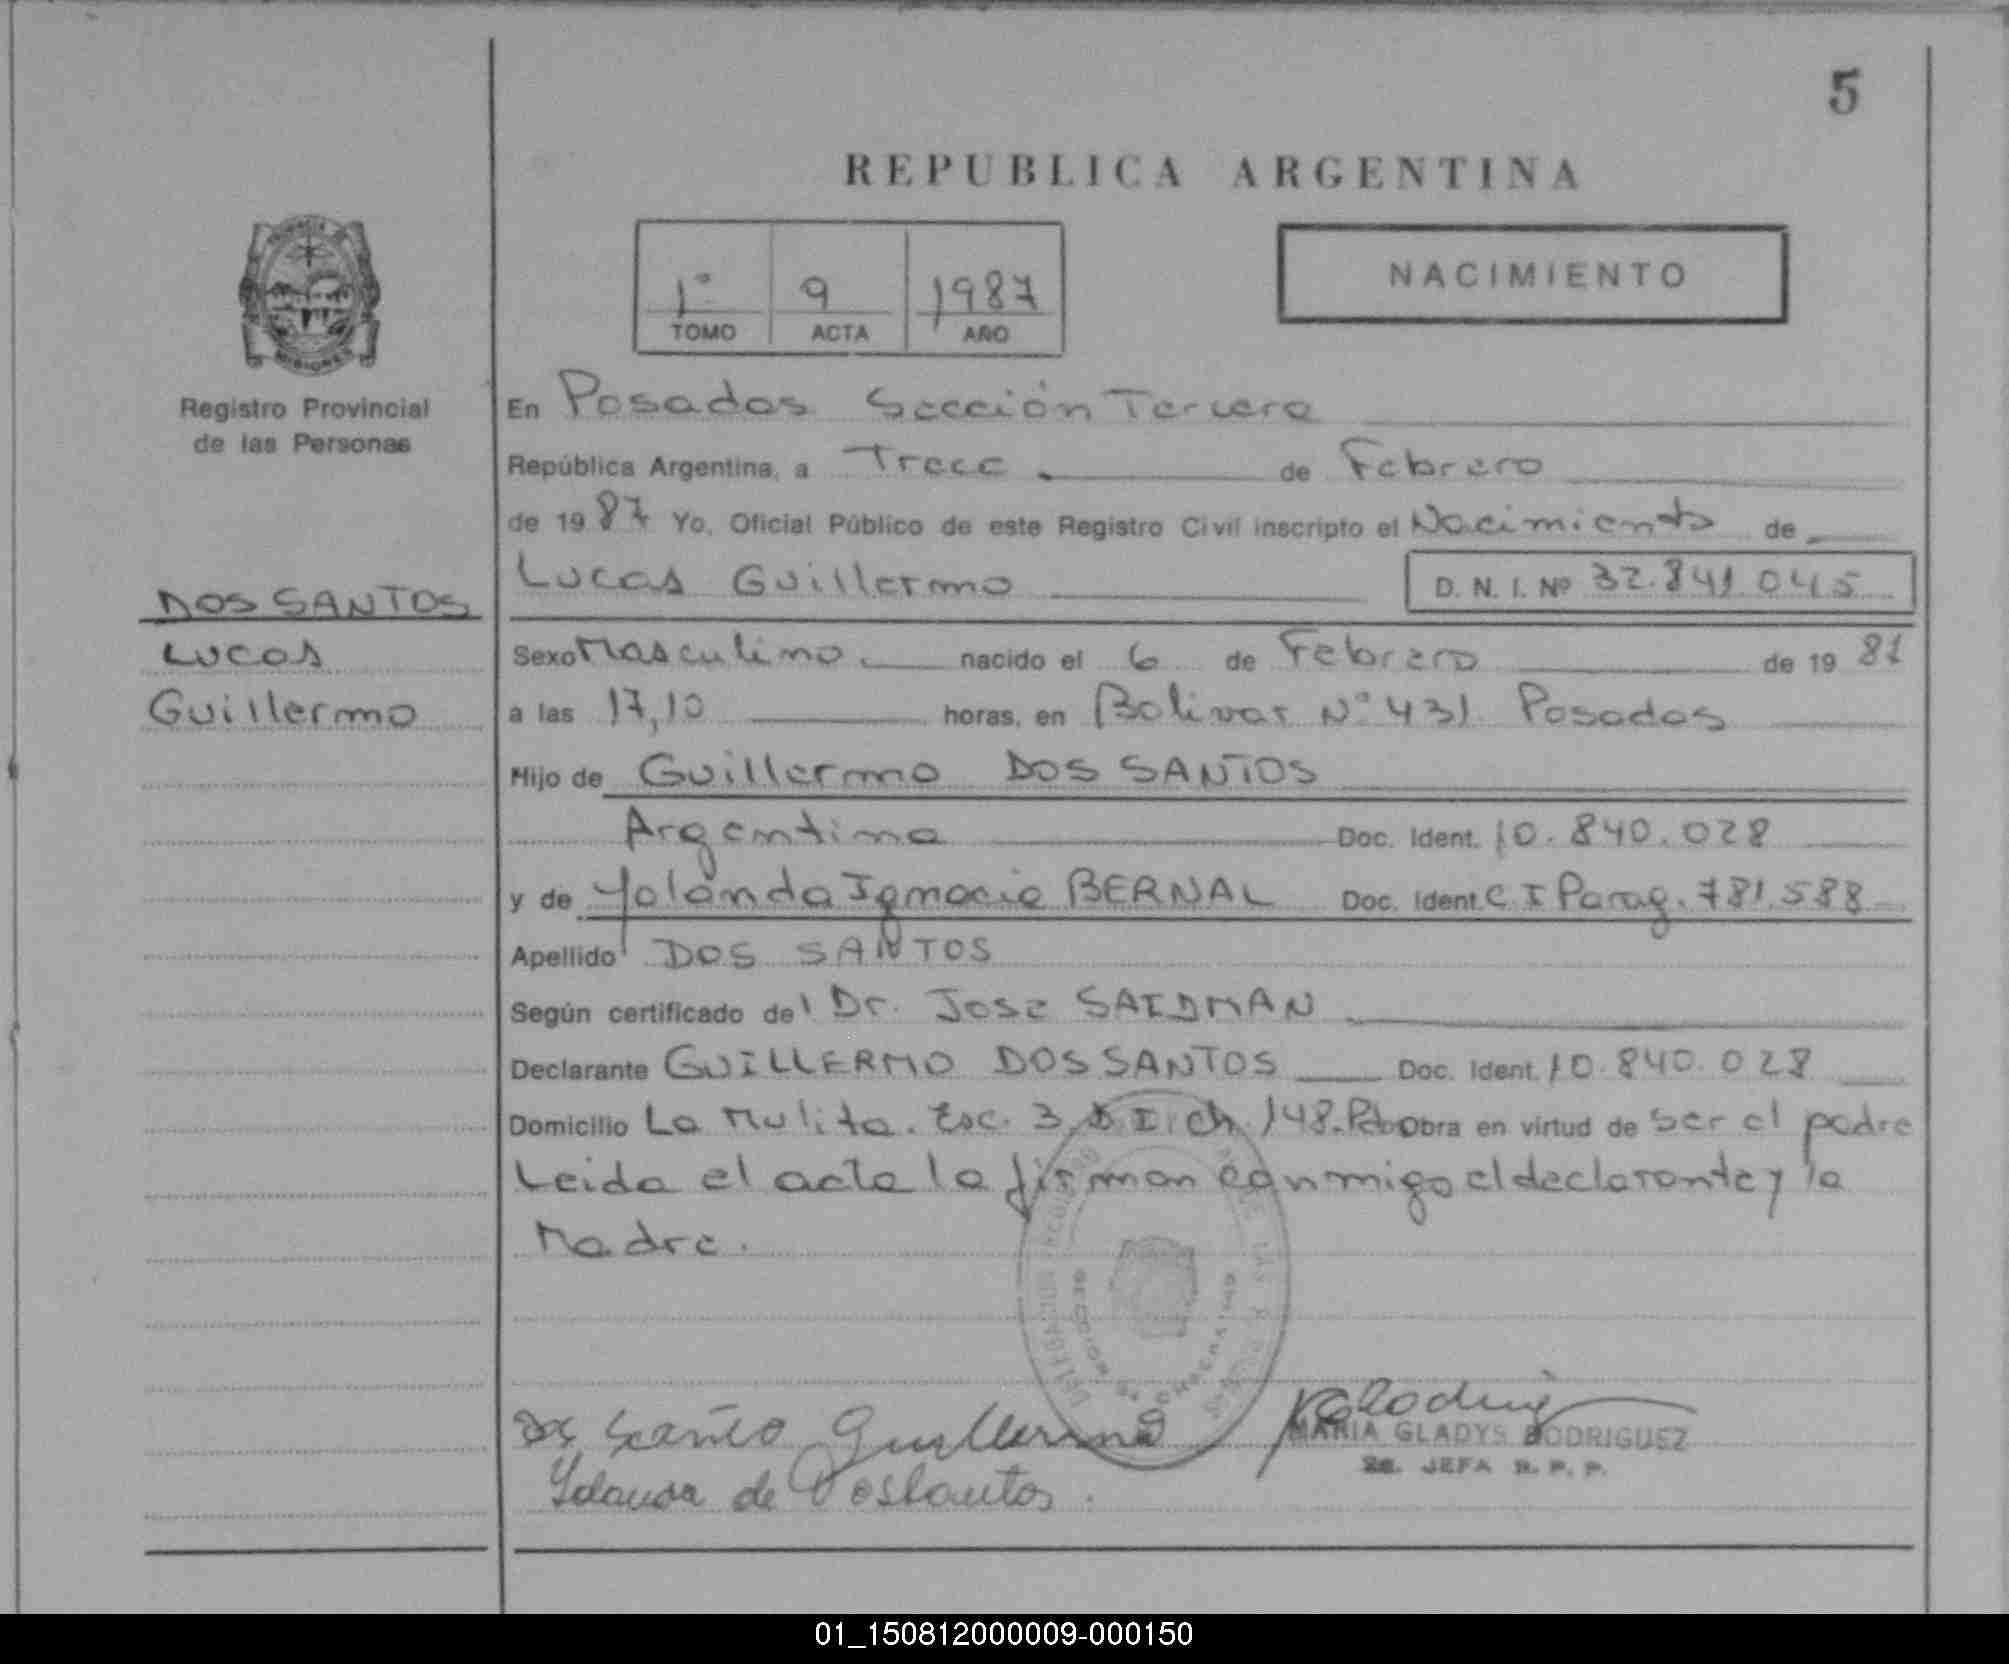 5
REPUBLICA ARGENTINA
1º 9 1987
TOMO ACTA AÑO
NACIMIENTO
MISIONES
Registro Provincial
de las Personas
DOS SANTOS
Lucas
Guillermo
En Posadas Sección Tercera
República Argentina, a Trece de Febrero
de 1987 Yo, Oficial Público de este Registro Civil inscripto el Nacimiento de
Lucas Guillermo D. N. I. Nº 32.841.045
Sexo Masculino nacido el 6 de Febrero de 1987
a las 17,10 horas, en Bolivar Nº 431 Posadas
Hijo de Guillermo DOS SANTOS
Argentina Doc. Ident. 10.840.028
y de Yolanda Ignacia BERNAL Doc. Ident. C I Parag. 781.588
Apellido DOS SANTOS
Según certificado del Dr. Jose SAIDMAN
Declarante GUILLERMO DOS SANTOS Doc. Ident. 10.840.028
Domicilio La Mulita. Esc. 3 I ch. 148. Obra en virtud de ser el padre
Leida el acta la firman conmigo el declarante y la
Madre.
Dos Santos Guillermo
Yolanda de Dos Santos.
MARIA GLADYS RODRIGUEZ
JEFA R. P. P.
01_150812000009-000150